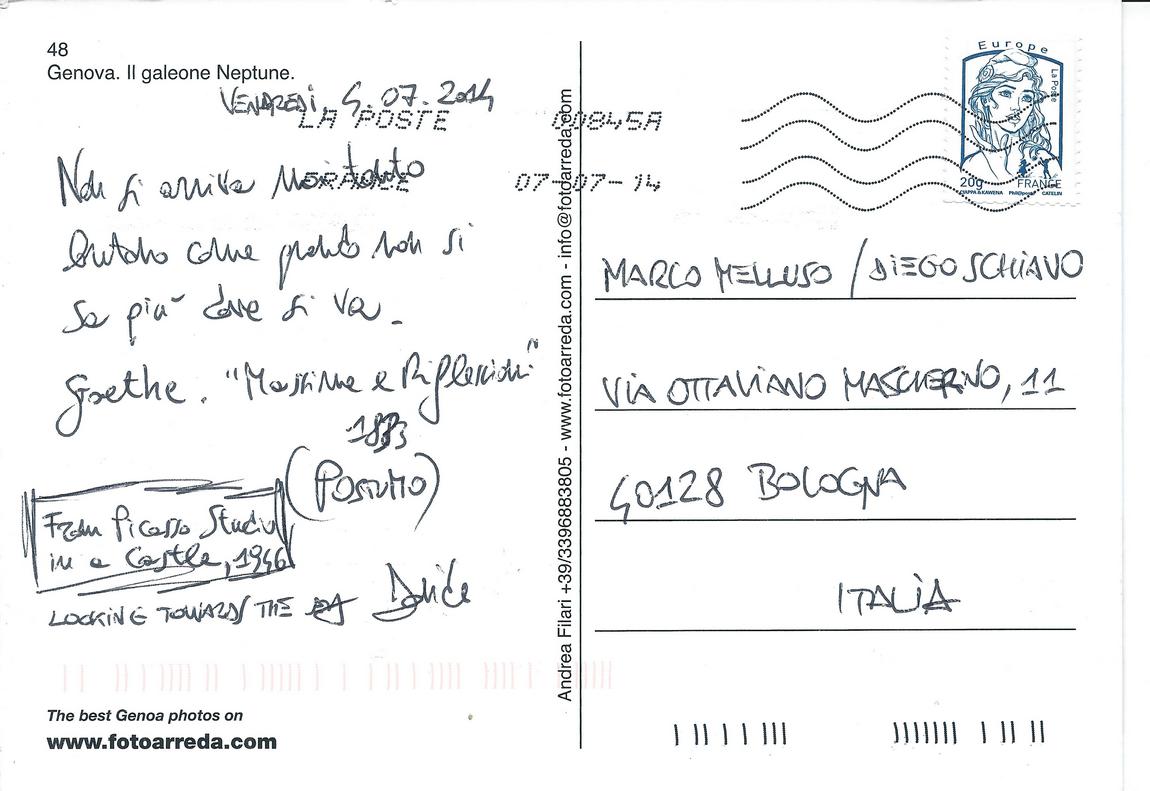 48
Genova. Il galeone Neptune.
VENERDI, 4.07.2014
LA POSTE
00845A
FRANCE
07-07-14
Non si arriva mai tanto
lontano come quando non si
sa più dove si va.
Goethe. "Massime e Riflessioni"
1833
(POSTUMO)
From Picasso Studio
in a Castle, 1946
LOOKING TOWARDS THE
The best Genoa photos on
www.fotoarreda.com
Andrea Filari +39/3396883805 - www.fotoarreda.com - info@fotoarreda.com
Europe
La Poste
20g
FRANCE
CIAPPA & KAWENA Phil@poste CATELIN
MARCO MELLUSO / DIEGO SCHIAVO
VIA OTTAVIANO MASCHERINO, 11
40128 BOLOGNA
ITALIA